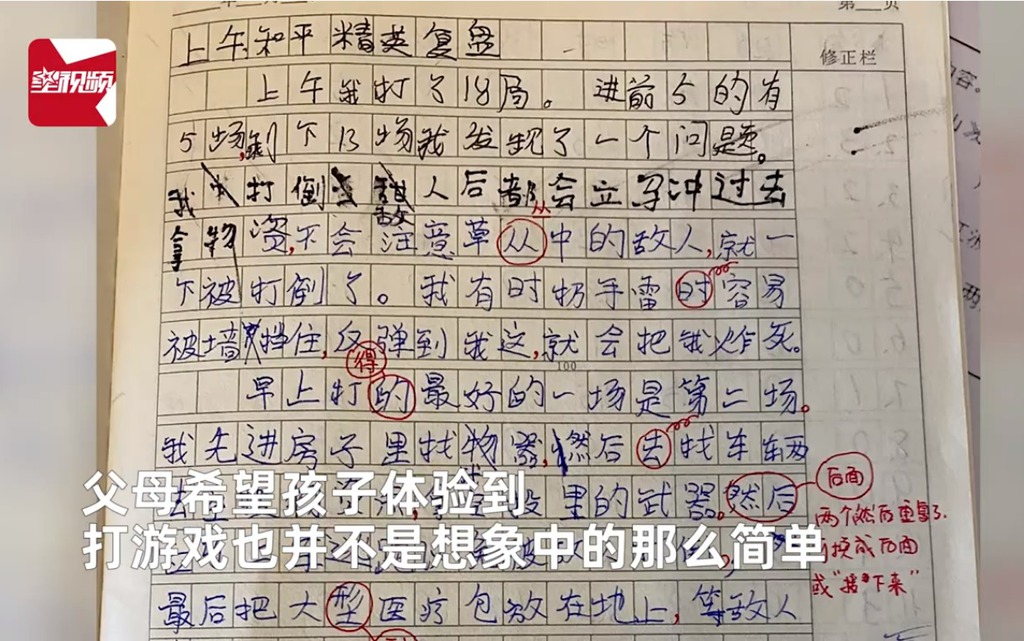 年 月 第 页
星视频
上午和平精英复盘
修正栏
上午我打了18局。进前5的有
5场,剩下13场我发现了一个问题。
我打倒敌人后都会立马冲过去
拿物资,不会注意草从中的敌人,就一
从
下被打倒了。我有时扔手雷时容易
被墙挡住,反弹到我这,就会把我炸死。
得
100
早上打的最好的一场是第二场。
我先进房子里找物器,然后去找车辆
里的武器。然后
后面
两个然后重复了.
换成后面
或"接下来"
父母希望孩子体验到
打游戏也并不是想象中的那么简单
最后把大型医疗包放在地上,等敌人